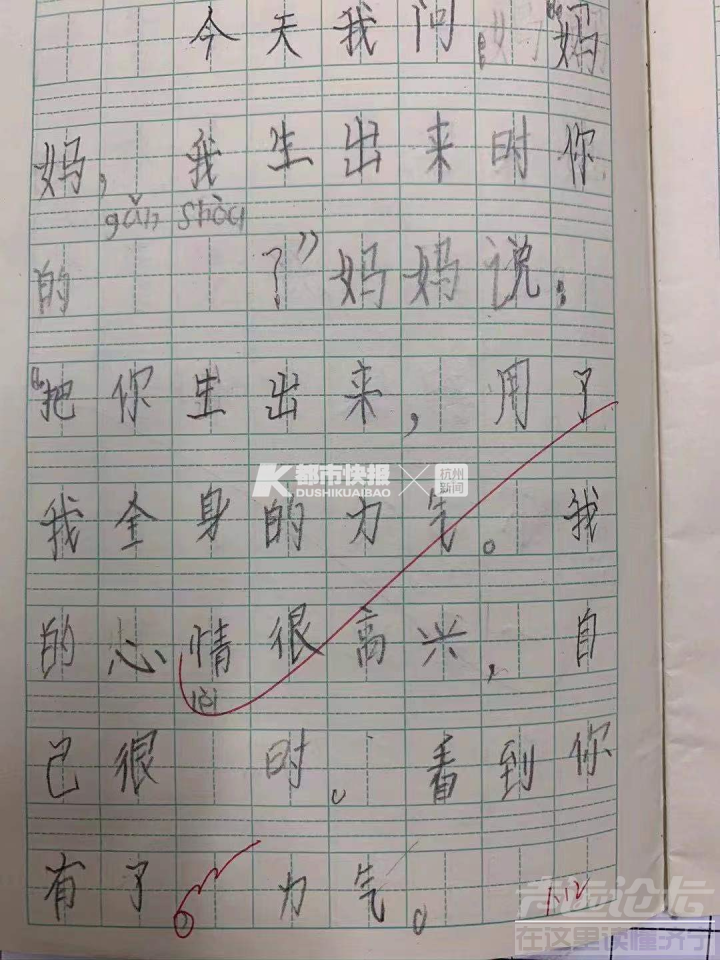 今天我问:“妈
妈,我生出来时你
gǎn shòu
的 了”妈妈说:
“把你生出来,用了
都市快报 杭州新闻
DUSHIKUAIBAO
我全身的力气。我
的心情很高兴,自
lèi
己很 时。看到你
有了 力气。
在这里读懂济宁